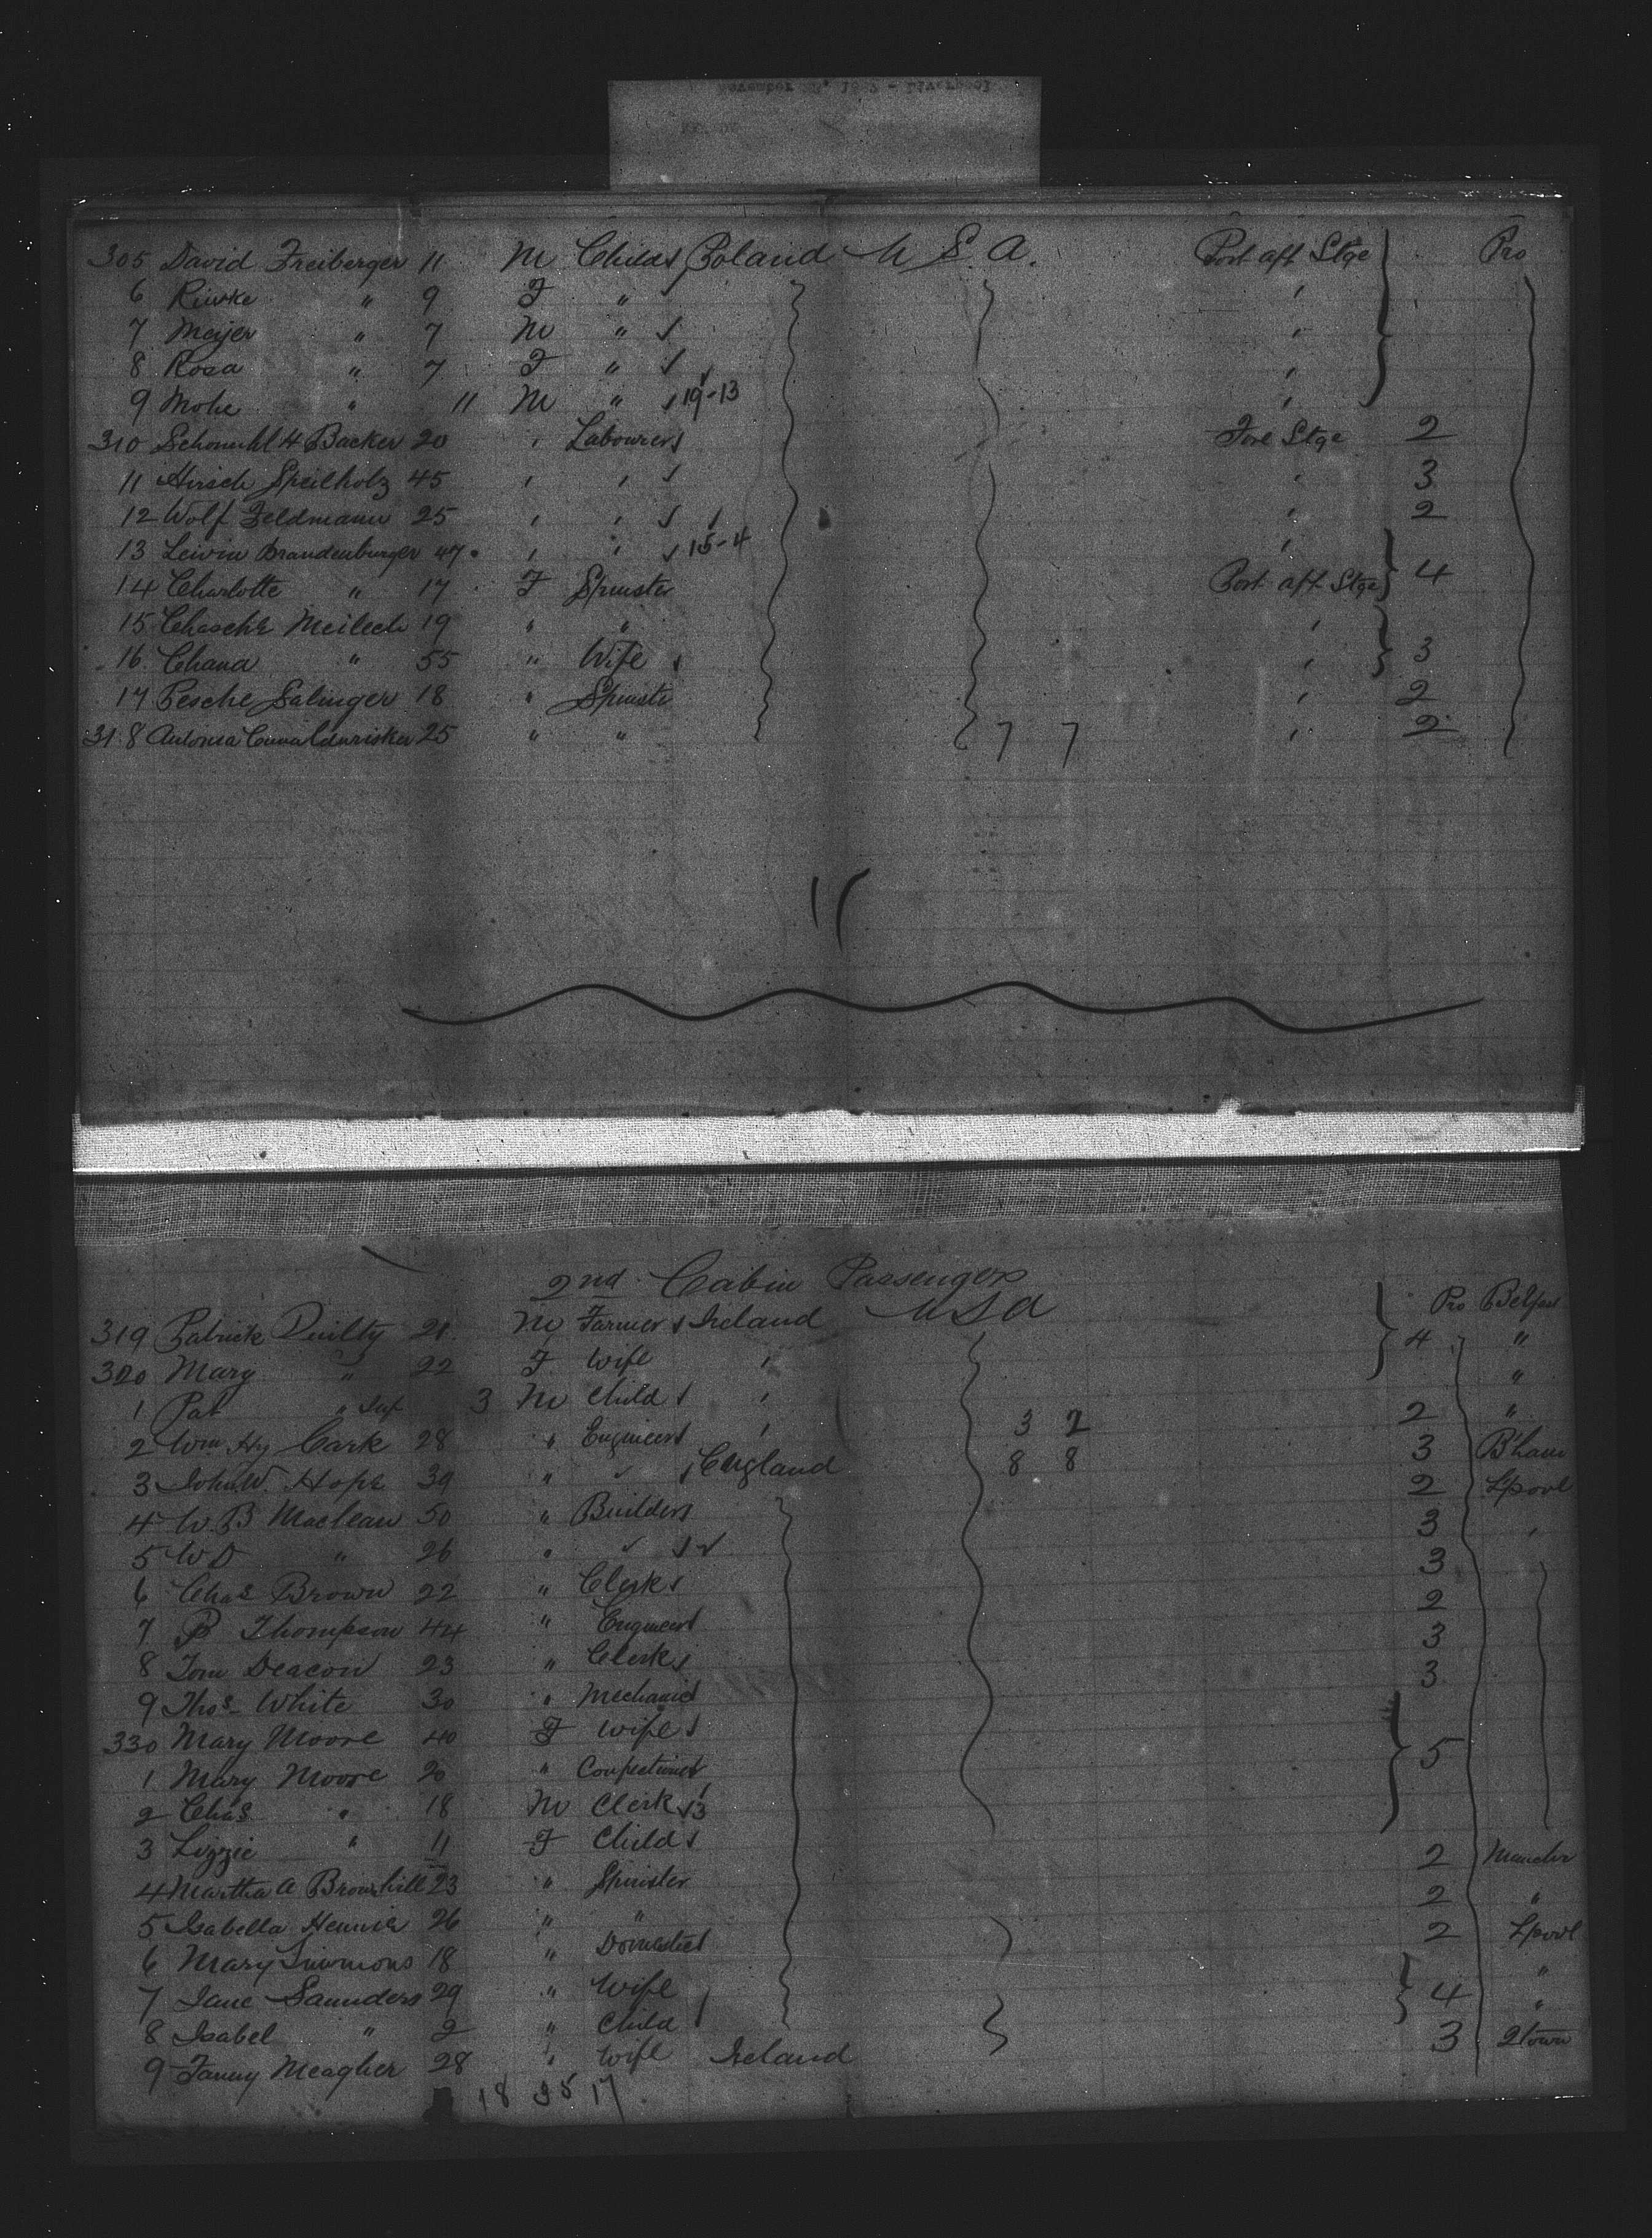 305 David Freiberger 11 M Child Poland U S. A. Port aft Stge Pro
6 Riwke " 9 F "
7 Meijer " 7 M "
8 Rosa " 7 F "
9 Mohe " 11 M " 19-13
310 H Backer 20 Labourer Fore Stge 2
11 Hirsch Speilholz 45 3
12 Wolf Feldmann 25 2
13 Brandenburger 47 15-4
14 Charlotte " 17 F Spinster Port aft Stge 4
15 Chasche Meilech 19 " "
16 Chana " 55 " Wife 3
17 Pesche Salinger 18 " Spinster 2
318 Antonia 25 " " 7 7 2
2nd Cabin Passengers
319 Patrick Quilty 21 M Farmer Ireland U S A Pro Belfast
320 Mary " 22 F Wife 4 "
1 Pat " Inf 3 M Child "
2 Wm Hy Cark 28 " Engineer 3 2 2 "
3 John W. Hope 39 " England 8 8 3 B'ham
4 W. B Maclean 50 " Builder 2 Lpool
5 W D " 26 " 3
6 Chas Brown 22 " Clerk 3
7 B Thompson 44 " Engineer 2
8 Tom Deacon 23 " Clerk 3
9 Thos White 30 " Mechanic 3
330 Mary Moore 40 F Wife
1 Mary Moore 20 " Confectioner 5
2 Chas " 18 M Clerk 13
3 Lizzie " 11 F Child
4 Martha A Brownhill 23 " Spinster 2 Manchr
5 Isabella 26 " " 2 "
6 Mary Simmons 18 " Domestic 2 Lpool
7 Jane Saunders 29 " Wife "
8 Isabel " 2 " Child 4 "
9 Fanny Meagher 28 " Wife Ireland 3 Qtown
18 35 17